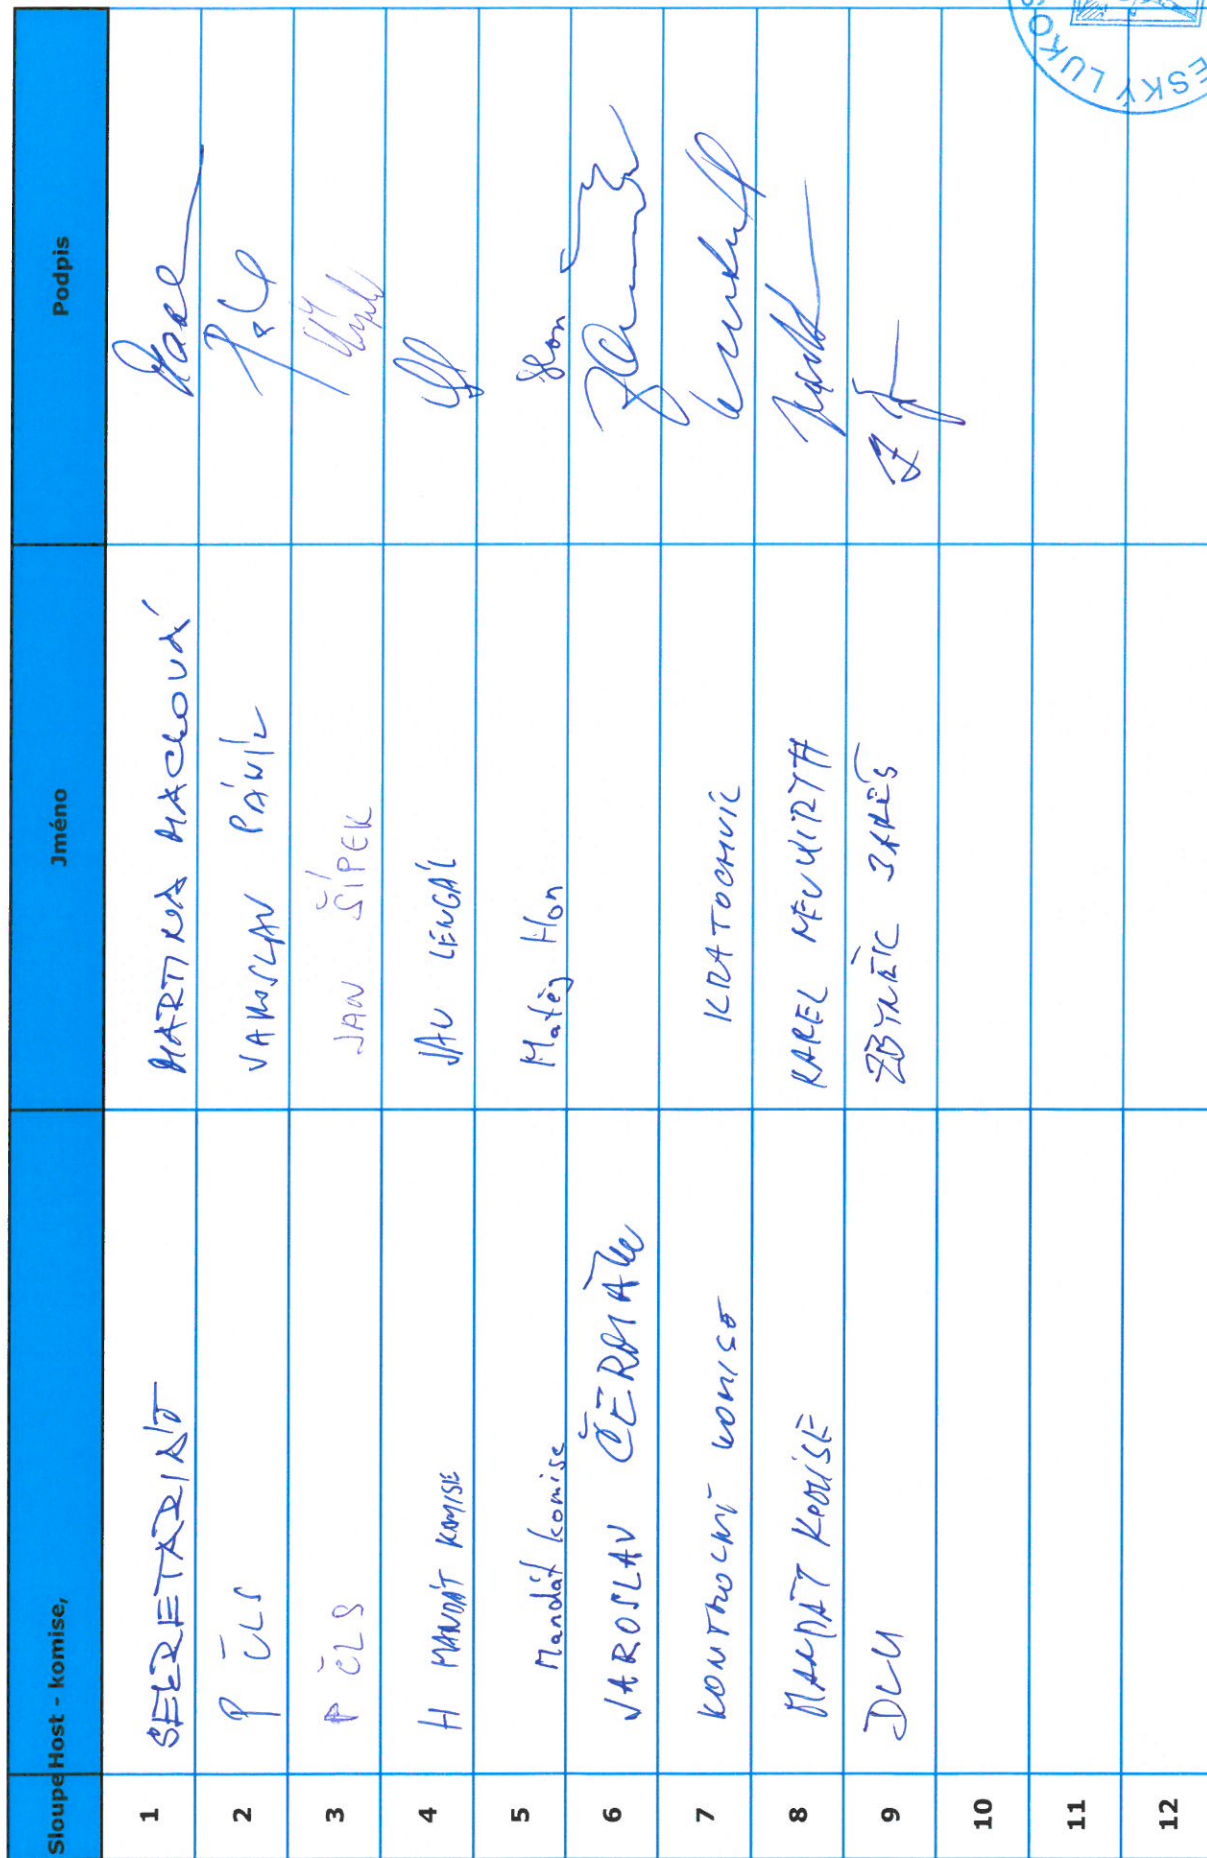 Sloupe Host - komise, Jméno Podpis
1 SEKRETARIÁT MARTINA MACHOVÁ
2 P ČLS JAROSLAV PÁNIK
3 P ČLS JAN ŠÍPEK
4 H MANDÁT KOMISE JAN LENGÁL
5 Mandát komise Matěj Hon Hon
6 JAROSLAV ČERMÁK
7 KONTROLNÍ KOMISE KRATOCHVÍL
8 MANDÁT KOMISE KAREL NEUWIRTH
9
10
11
12
ESKÝ LUKO